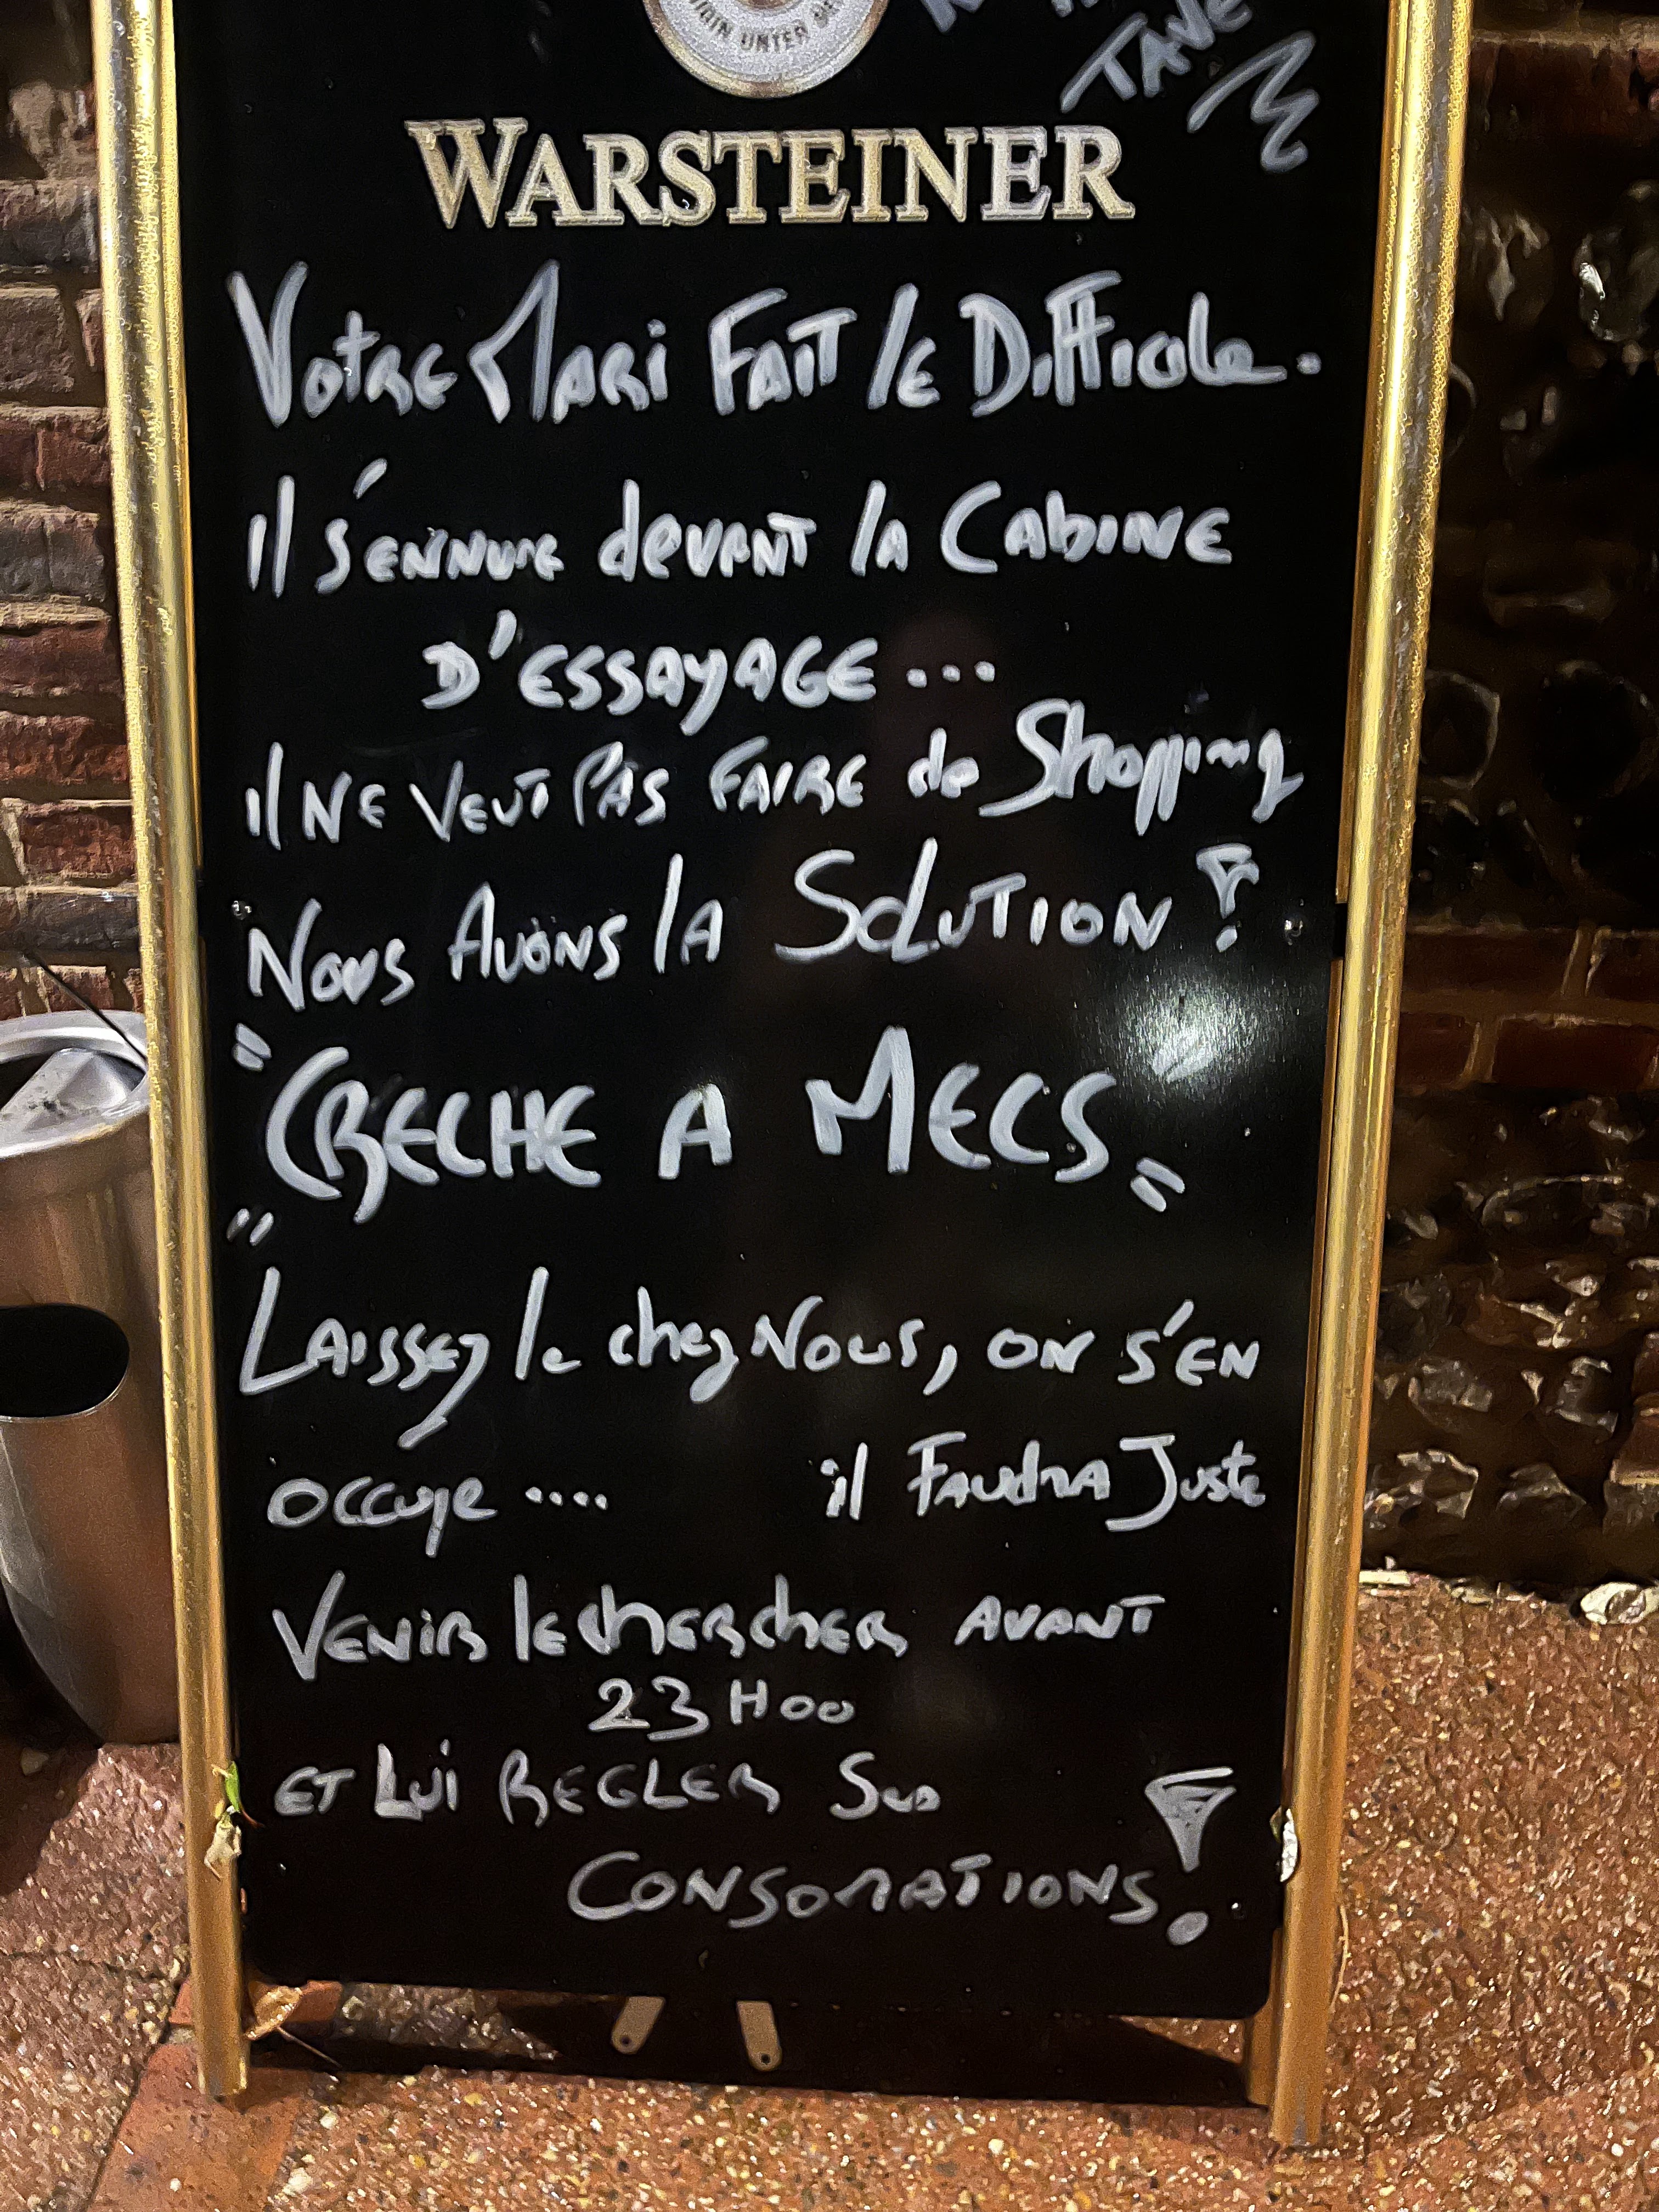 UNTER
TAVE
WARSTEINER
Votre Mari Fait le Difficile.
il s'ennuie devant la Cabine
D'ESSAYAGE ....
il NE Veut PAS FAIRE de Shopping
Nous Avons la Solution !
"CRECHE A MECS"
"
Laissez le chez Nous, on s'EN
occupe .... il Faudra Juste
Venir le chercher AVANT
23H00
ET Lui REGLER Ses
CONSOMATIONS !